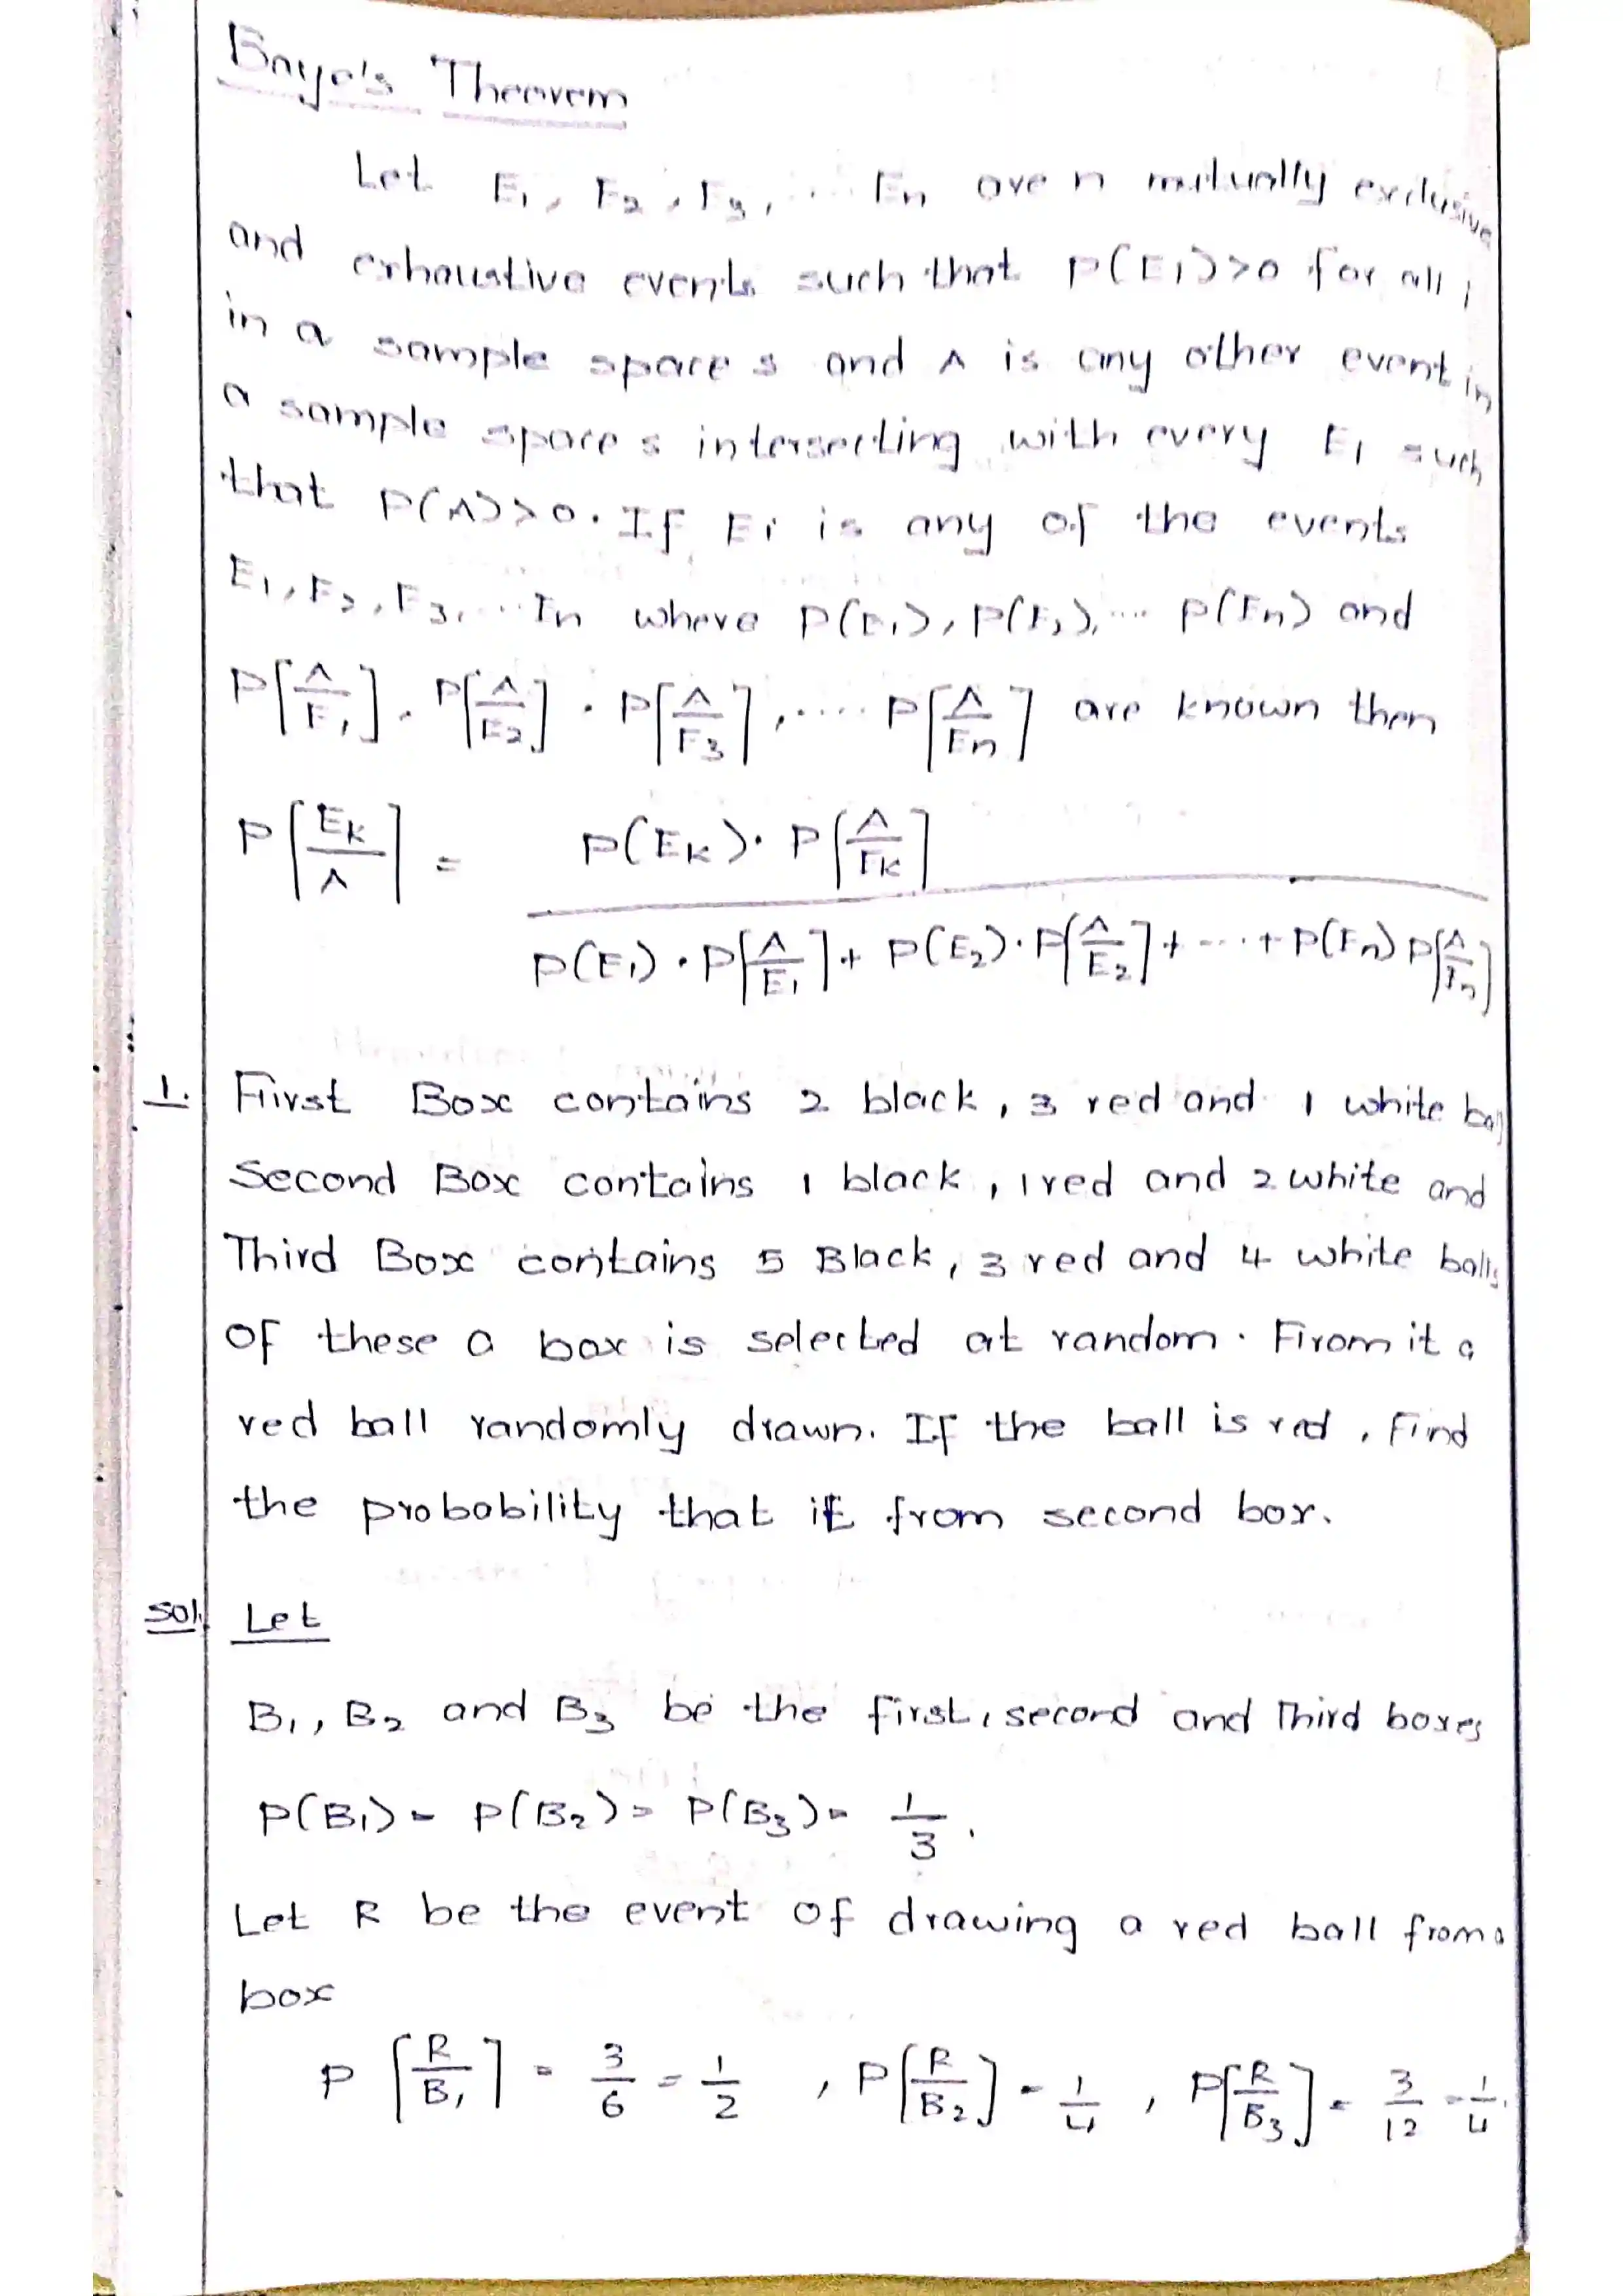 Baye's Theorem
Let E1, E2, E3, ... En are n mutually exclusive
and exhaustive events such that P(Ei)>0 for all i
in a sample space s and A is any other event in
a sample space s intersecting with every Ei such
that P(A)>0. If Ei is any of the events
E1, E2, E3, ... En where P(E1), P(E2), ... P(En) and
P[A/E1], P[A/E2], P[A/E3], .... P[A/En] are known then
P[Ek/A] = P(Ek). P[A/Ek] / P(E1) . P[A/E1] + P(E2). P[A/E2] + ... + P(En) P[A/En]
1. First Box contains 2 black, 3 red and 1 white ball
Second Box contains 1 black, 1 red and 2 white and
Third Box contains 5 Black, 3 red and 4 white balls
Of these a box is selected at random. From it a
red ball randomly drawn. If the ball is red, Find
the probability that it from second box.
Sol. Let
B1, B2 and B3 be the first, second and Third boxes
P(B1) = P(B2) = P(B3) = 1/3.
Let R be the event of drawing a red ball from a
box
P[R/B1] = 3/6 = 1/2, P[R/B2] = 1/4, P[R/B3] = 3/12 = 1/4.